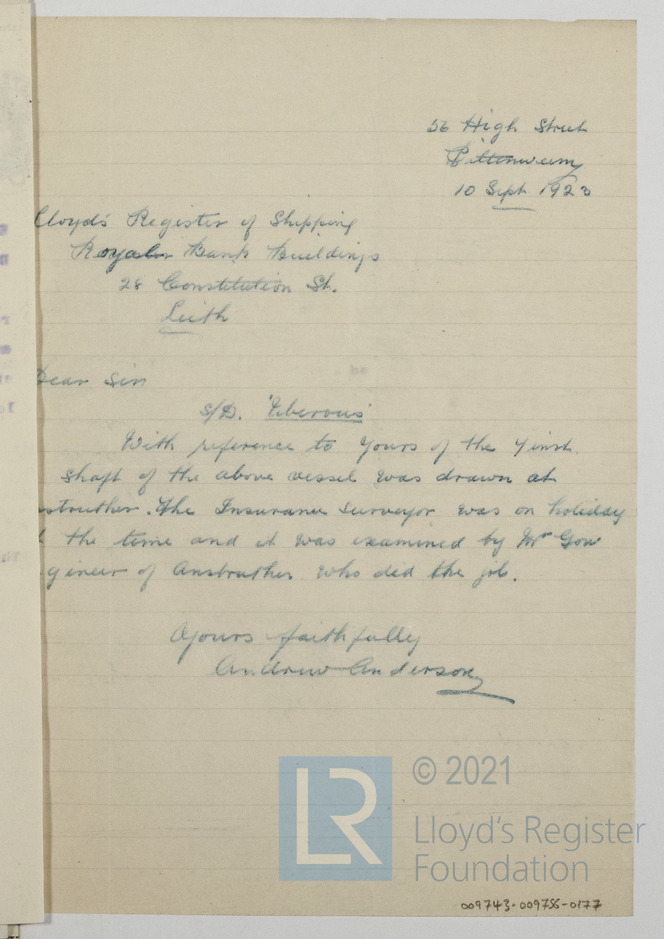 56 High Street
Pittenweem
10 Sept 1923
Lloyd's Register of Shipping
Royal Bank Buildings
28 Constitution St.
Leith
Dear Sir
S/D. 'Uberous'
With reference to yours of the 7 inst.
shaft of the above vessel was drawn at
nstruther. The Insurance Surveyor was on holiday
the time and it was examined by Mr Gow
gineer of Anstruther who did the job.
Yours faithfully
Andrew Anderson
LR
© 2021
Lloyd's Register
Foundation
009743-009756-0177